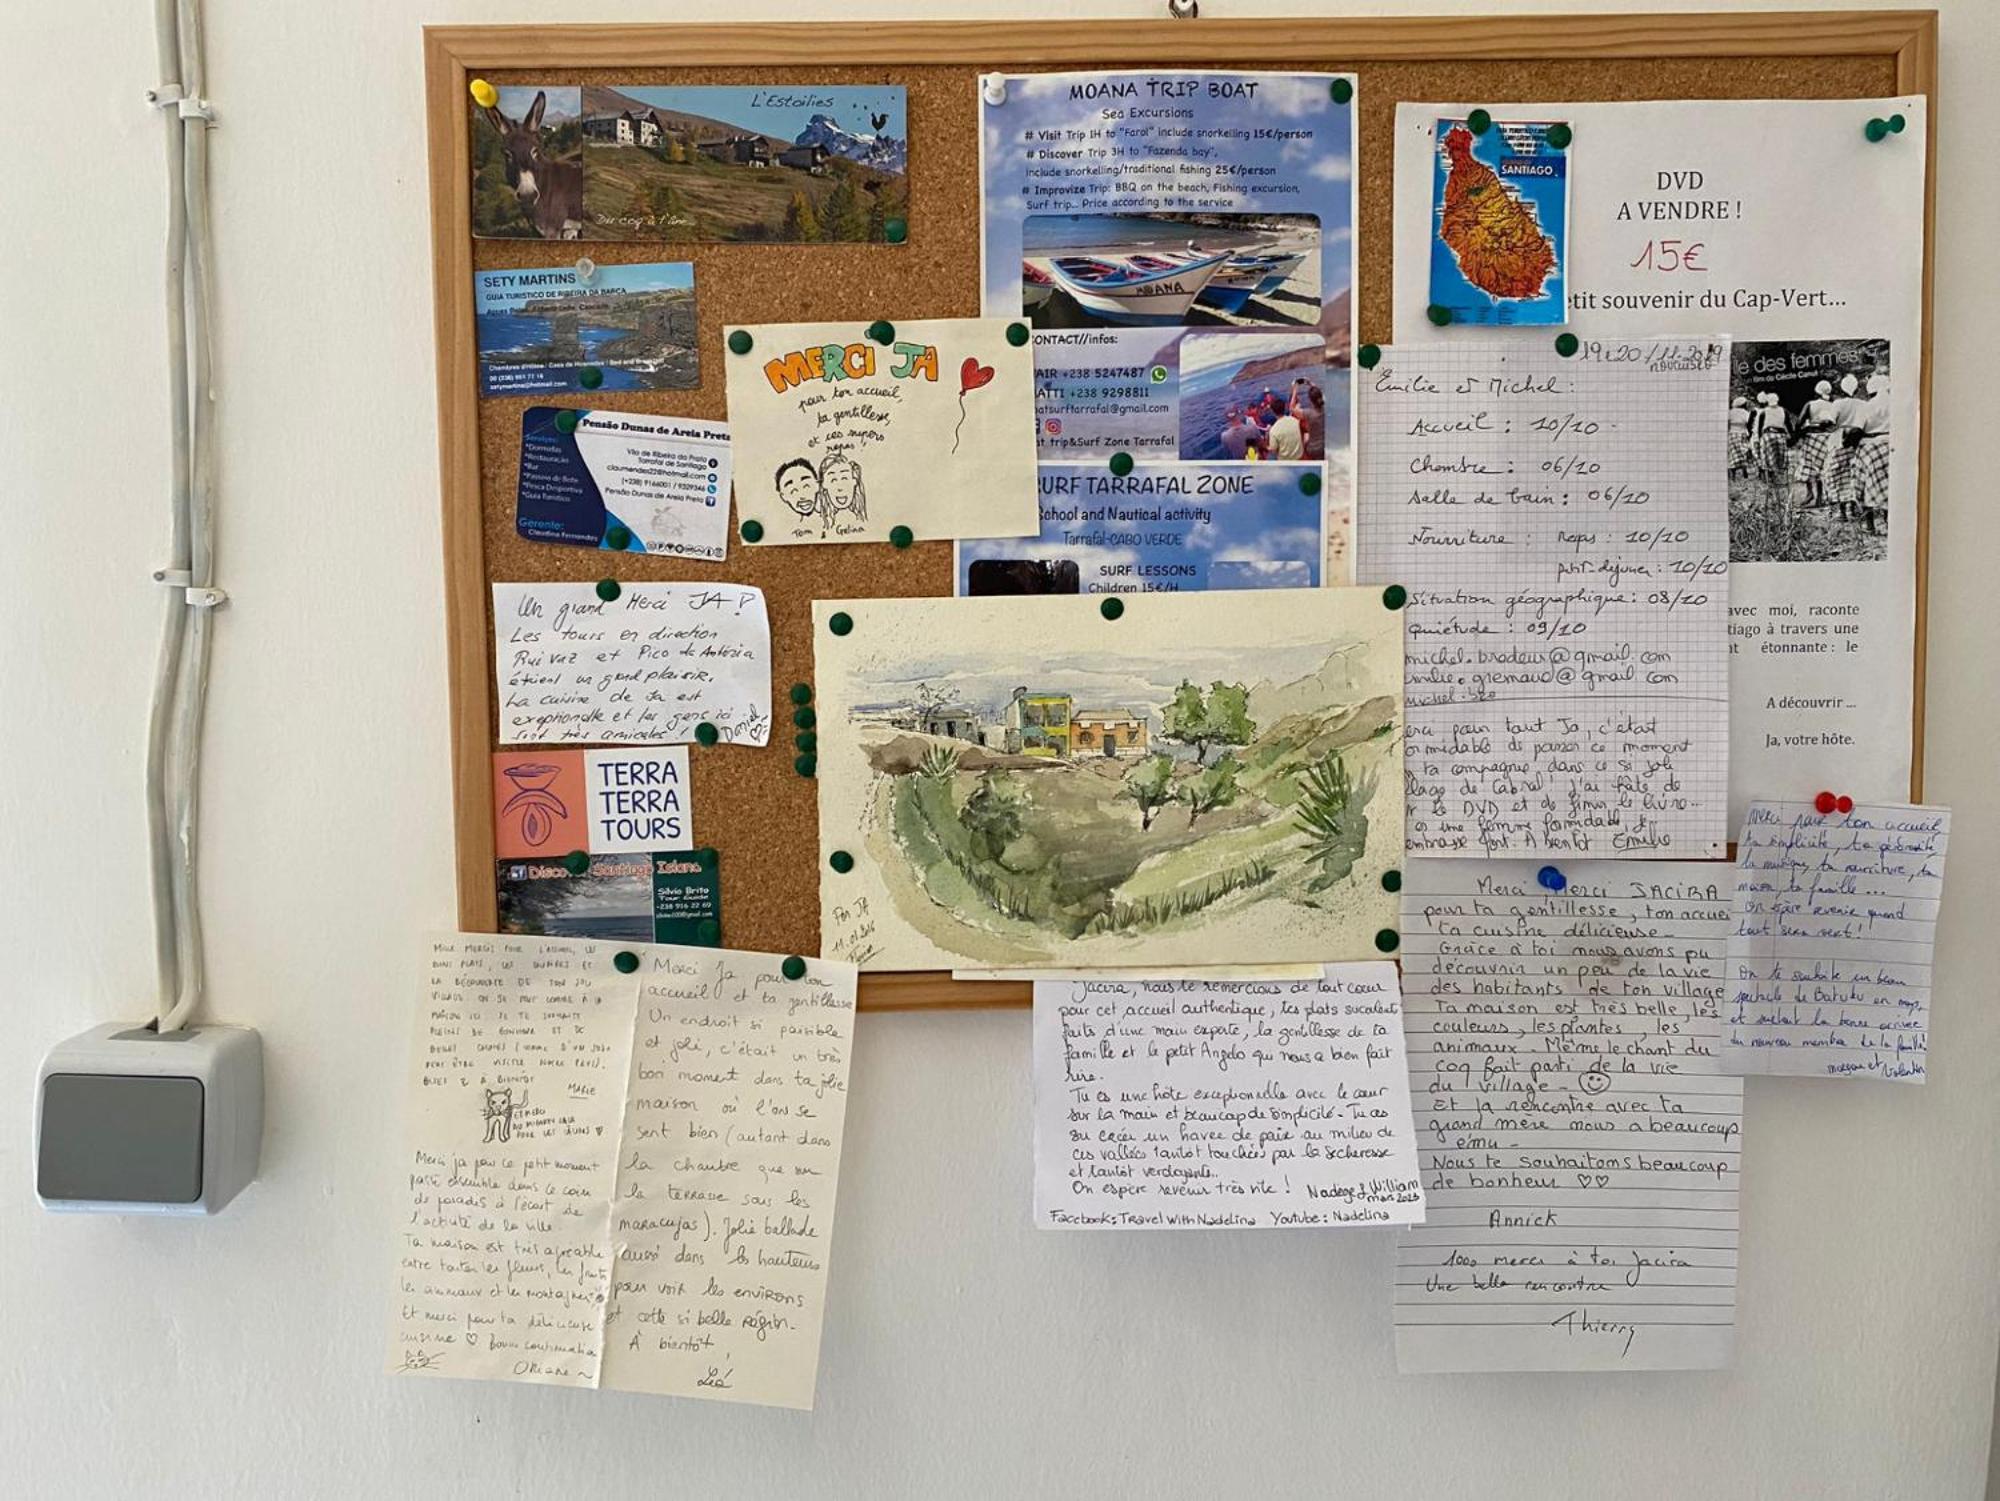 L'Estoilies
Du coq à l'âne...
SETY MARTINS
GUIA TURISTICO DE RIBEIRA DA BARCA
Chambres d'Hôtes / Casa de Hospedes / Bed and
00 (238) 951 77 16
setymartins@hotmail.com
Pensão Dunas de Areia Preta
Serviços:
*Dormidas
*Restauração
*Bar
*Passeio de Bote
*Pesca Desportiva
*Guia Turistico
Vila de Ribeira da Prata
Tarrafal de Santiago
claumendes22@hotmail.com
(+238) 9166001 / 9329346
Pensão Dunas de Areia Preta
Gerente:
Claudina Fernandes
MERCI JA
pour ton accueil,
ta gentillesse,
et ces supers
repas!
Tom & Gelina
MOANA TRIP BOAT
Sea Excursions
# Visit Trip 1H to "Farol" include snorkelling 15€/person
# Discover Trip 3H to "Fazenda bay",
include snorkelling/traditional fishing 25€/person
# Improvize Trip: BBQ on the beach, Fishing excursion,
Surf trip... Price according to the service
MOANA
CONTACT//infos:
AIR +238 5247487
ATTI +238 9298811
atsurftarrafal@gmail.com
t trip&Surf Zone Tarrafal
URF TARRAFAL ZONE
School and Nautical activity
Tarrafal-CABO VERDE
SURF LESSONS
Children 15€/H
SANTIAGO
DVD
A VENDRE !
15€
etit souvenir du Cap-Vert...
le des femmes
un film de Cécile Canut
avec moi, raconte
tiago à travers une
t étonnante : le
A découvrir ...
Ja, votre hôte.
19 & 20 / 11. 2019
novembre
Émilie et Michel :
Accueil : 10/10
Chambre : 06/10
Salle de bain : 06/10
Nourriture : repas : 10/10
petit-déjeuner : 10/10
Situation géographique : 08/10
Quiétude : 09/10
michel.brodeur@gmail.com
emilie.gremaud@gmail.com
erci pour tout Ja, c'était
ormidable de passer ce moment
ta compagnie dans ce si joli
llage de Cabral! j'ai hâte de
r le DVD et de finir le livre...
es une femme formidable, je
embrasse fort. A bientôt Emilie
Un grand Merci JA!
Les tours en direction
Rui Vaz et Pico da Antónia
étaient un grand plaisir.
La cuisine de Ja est
exeptionalle et les gens ici
sont très amicales! Daniel
TERRA
TERRA
TOURS
Disco Santiago Island
Silvio Brito
Tour Guide
+238 916 22 69
Por JA
11.01.2016
MILLE MERCIS POUR L'ACCUEIL, LES
BONS PLATS, LES SOURIRES ET
LA DÉCOUVERTE DE TON JOLI
VILLAGE. ON SE SENT COMME À LA
MAISON ICI. JE TE SOUHAITE
PLEINS DE BONHEUR ET DE
BELLES CHOSES (COMME D'UN JOUR
PEUT ÊTRE VISITER NOTRE PAYS).
BISES & À BIENTÔT
MARIE
Merci ja pour ce petit moment
passé ensemble dans ce coin
de paradis à l'écart de
l'activité de la ville.
Ta maison est très agréable
entre toutes les fleurs, les fruits
les animaux et les montagnes
Et merci pour ta délicieuse
cuisine ♡ Bonne continuation
Oriane ~
Merci Ja pour ton
accueil et ta gentillesse
Un endroit si paisible
et joli, c'était un très
bon moment dans ta jolie
maison où l'on se
sent bien (autant dans
la chambre que sur
la terrasse sous les
maracujas). Jolie ballade
aussi dans les hauteurs
pour voir les environs
et cette si belle région.
À bientôt,
Léa
Jacira, nous te remercions de tout coeur
pour cet accueil authentique, tes plats succulents
faits d'une main experte, la gentillesse de ta
famille et le petit Angelo qui nous a bien fait
rire.
Tu es une hôte exceptionnelle avec le coeur
sur la main et beaucoup de simplicité. Tu as
su créer un havre de paix au milieu de
ces vallées tantôt touchées par la sécheresse
et tantôt verdoyante..
On espère revenir très vite ! Nadège & William
mars 2023
Facebook: Travel With Nadelina Youtube : Nadelina
Merci Merci JACIRA
pour ta gentillesse, ton accuei
ta cuisine délicieuse -
Grâce à toi nous avons pu
découvrir un peu de la vie
des habitants de ton village
Ta maison est très belle, les
couleurs, les plantes, les
animaux - Même le chant du
coq fait parti de la vie
du village -
Et la rencontre avec ta
grand mère nous a beaucoup
ému -
Nous te souhaitons beaucoup
de bonheur ♡♡
Annick
1000 merci à toi Jacira
Une belle rencontre
Thierry
Merci pour ton accueil,
ta simplicité, ta générosité
la musique, ta nourriture, ta
maison, ta famille ...
On espère revenir quand
tout sera vert!
On te souhaite un beau
spectacle de Batuku en mars,
et surtout la bonne arrivée
du nouveau membre de la famille!
Morgan et Valentin